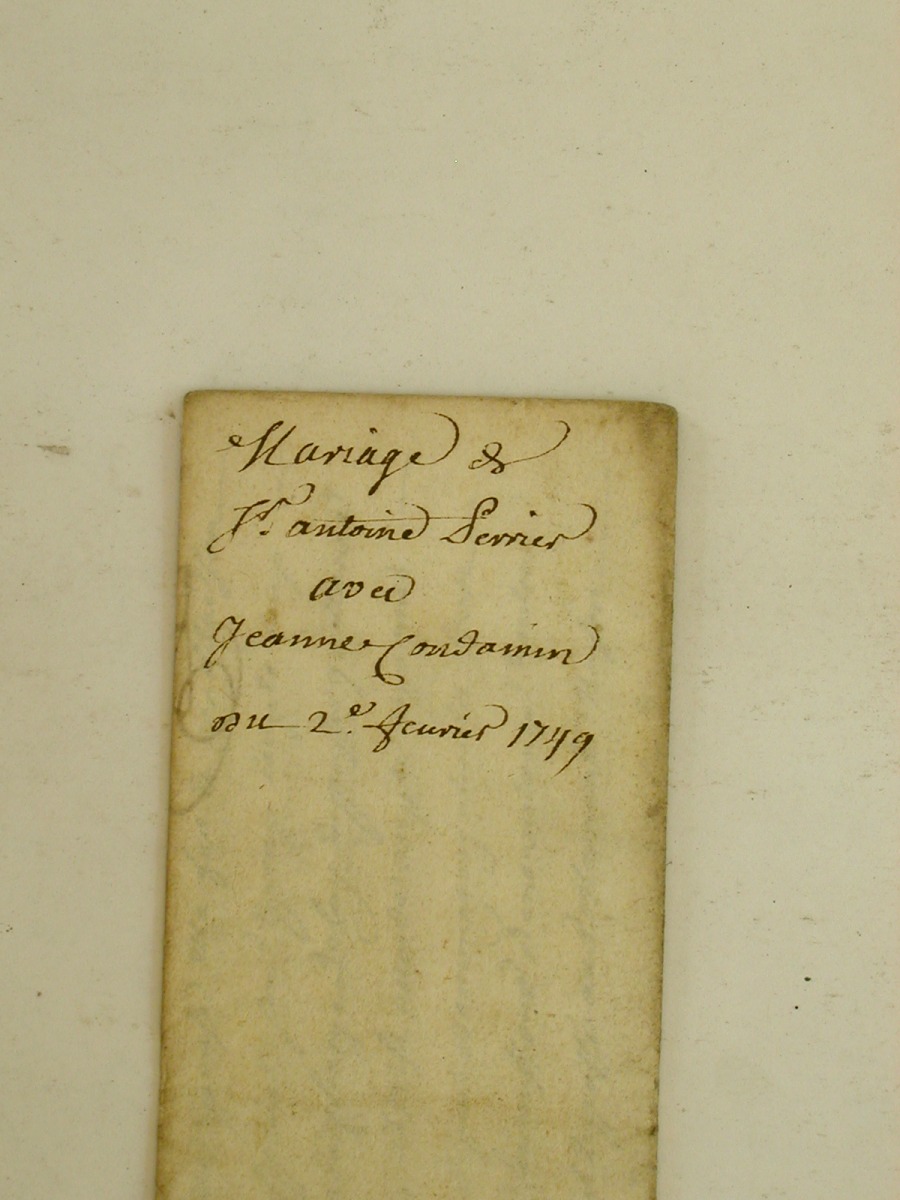 Mariage de
Sr. antoine Perrier
avec
Jeanne Condamin
Du 2e. feurier 1749